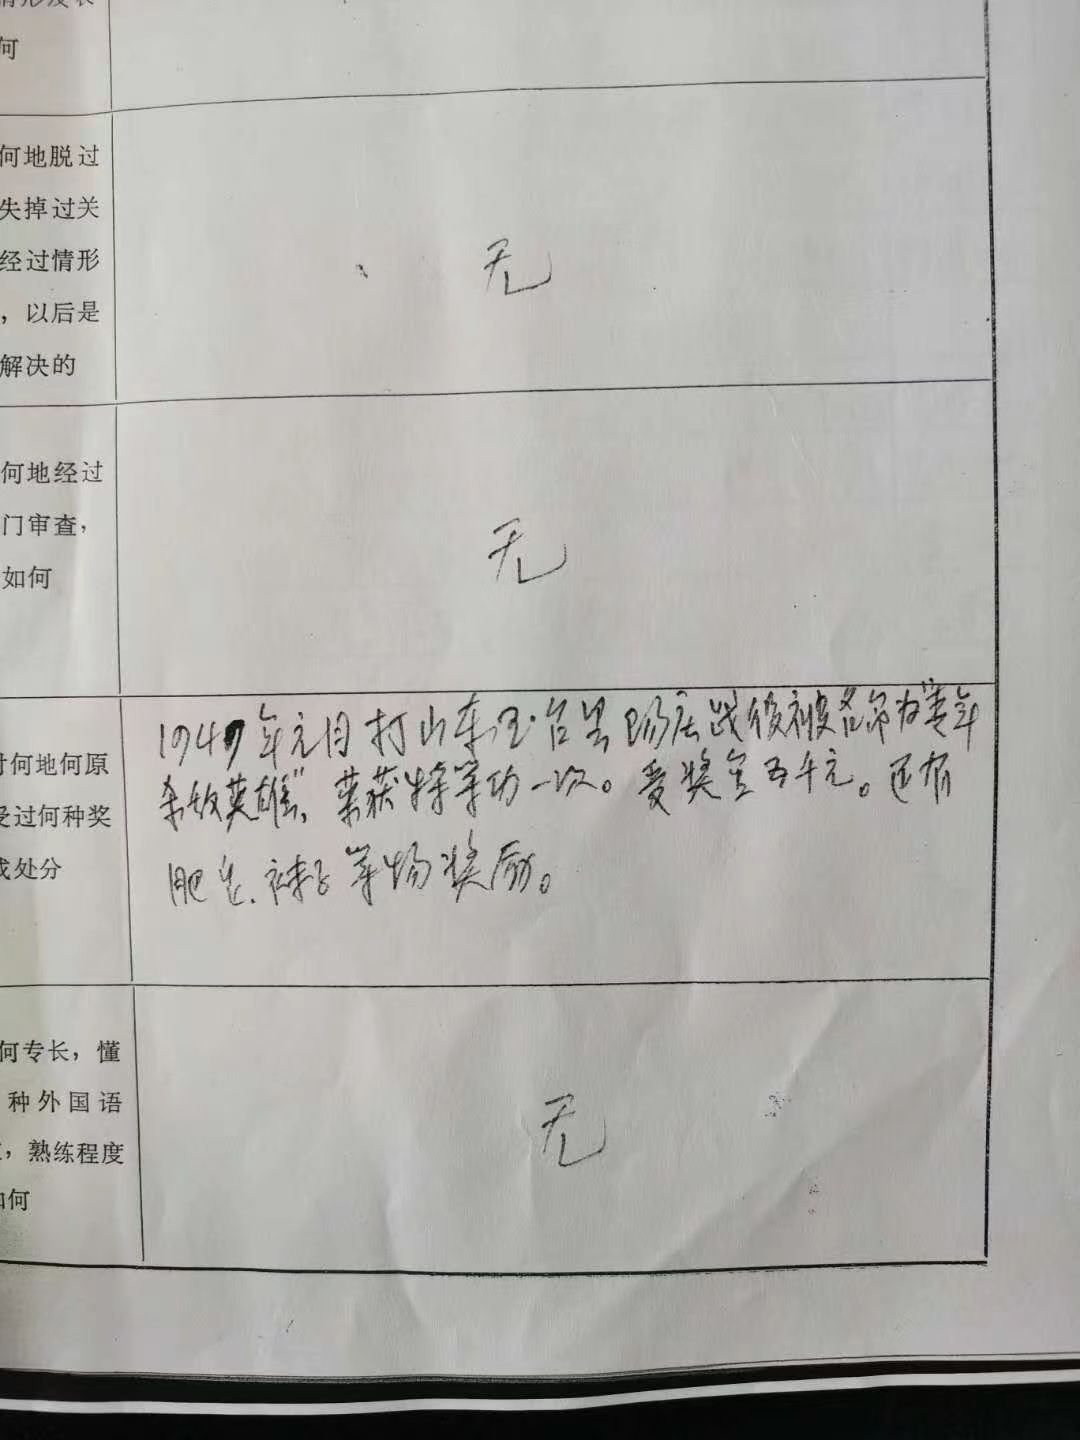 何
何地脱过
失掉过关
经过情形
，以后是
解决的
无
何地经过
门审查，
如何
无
时何地何原
受过何种奖
或处分
年元月打山东 台 战后被 命为“青年
杀敌英雄”，荣获特等功一次。受奖金五千元。还有
肥皂、袜子等物奖励。
何专长，懂
种外国语
，熟练程度
如何
无